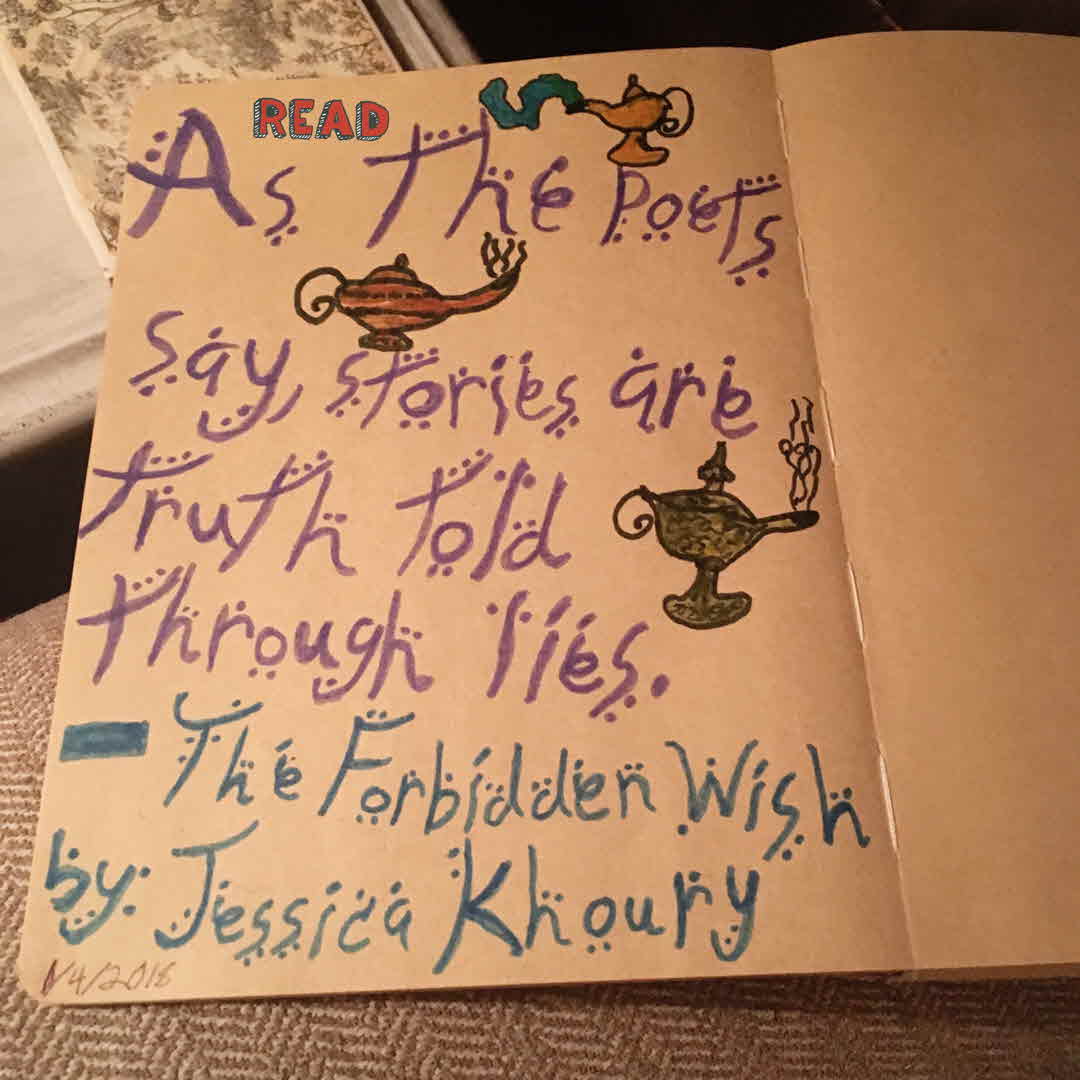 READ
As The Poets
say, stories are
truth told
through lies.
- The Forbidden Wish
by: Jessica Khoury
1/4/2018